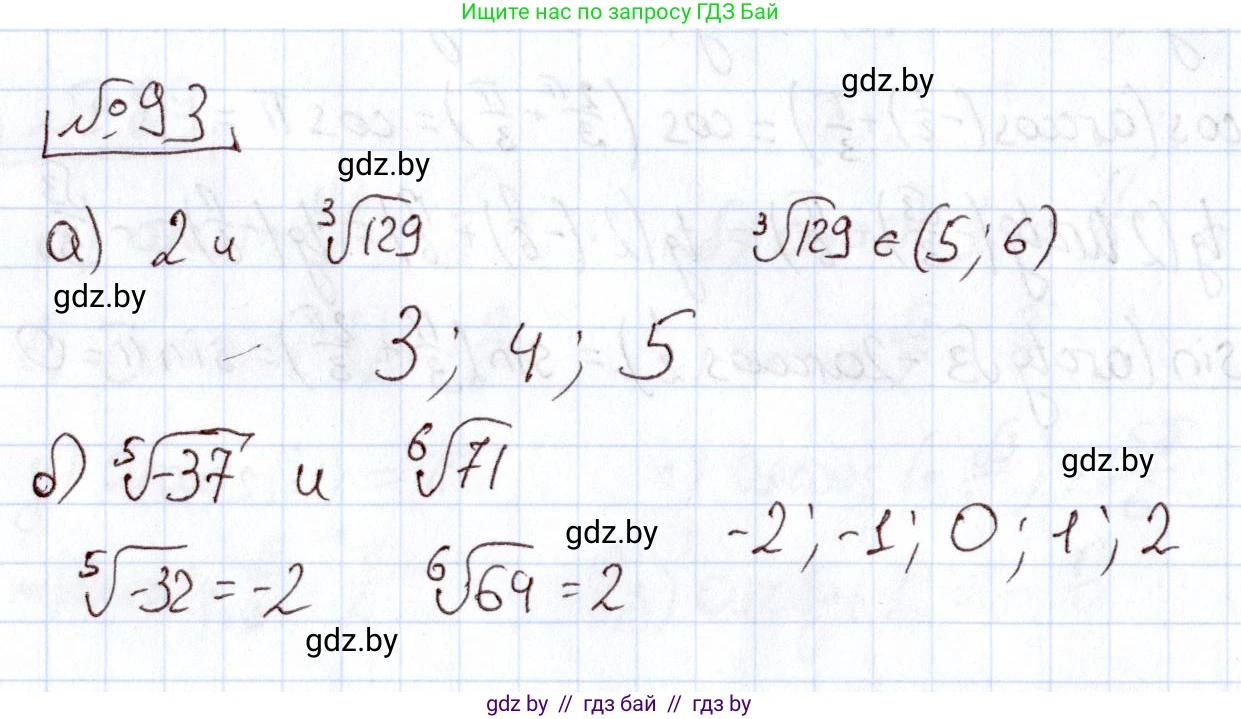 Ищите нас по запросу ГДЗ Бай
№93
gdz.by
gdz.by
а) 2 и ∛129 ∛129 ∈ (5; 6)
gdz.by
3; 4; 5
б) ⁵√-37 и ⁶√71
gdz.by
-2; -1; 0; 1; 2
gdz.by
⁵√-32 = -2 ⁶√64 = 2
gdz.by
gdz.by // гдз бай // gdz.by